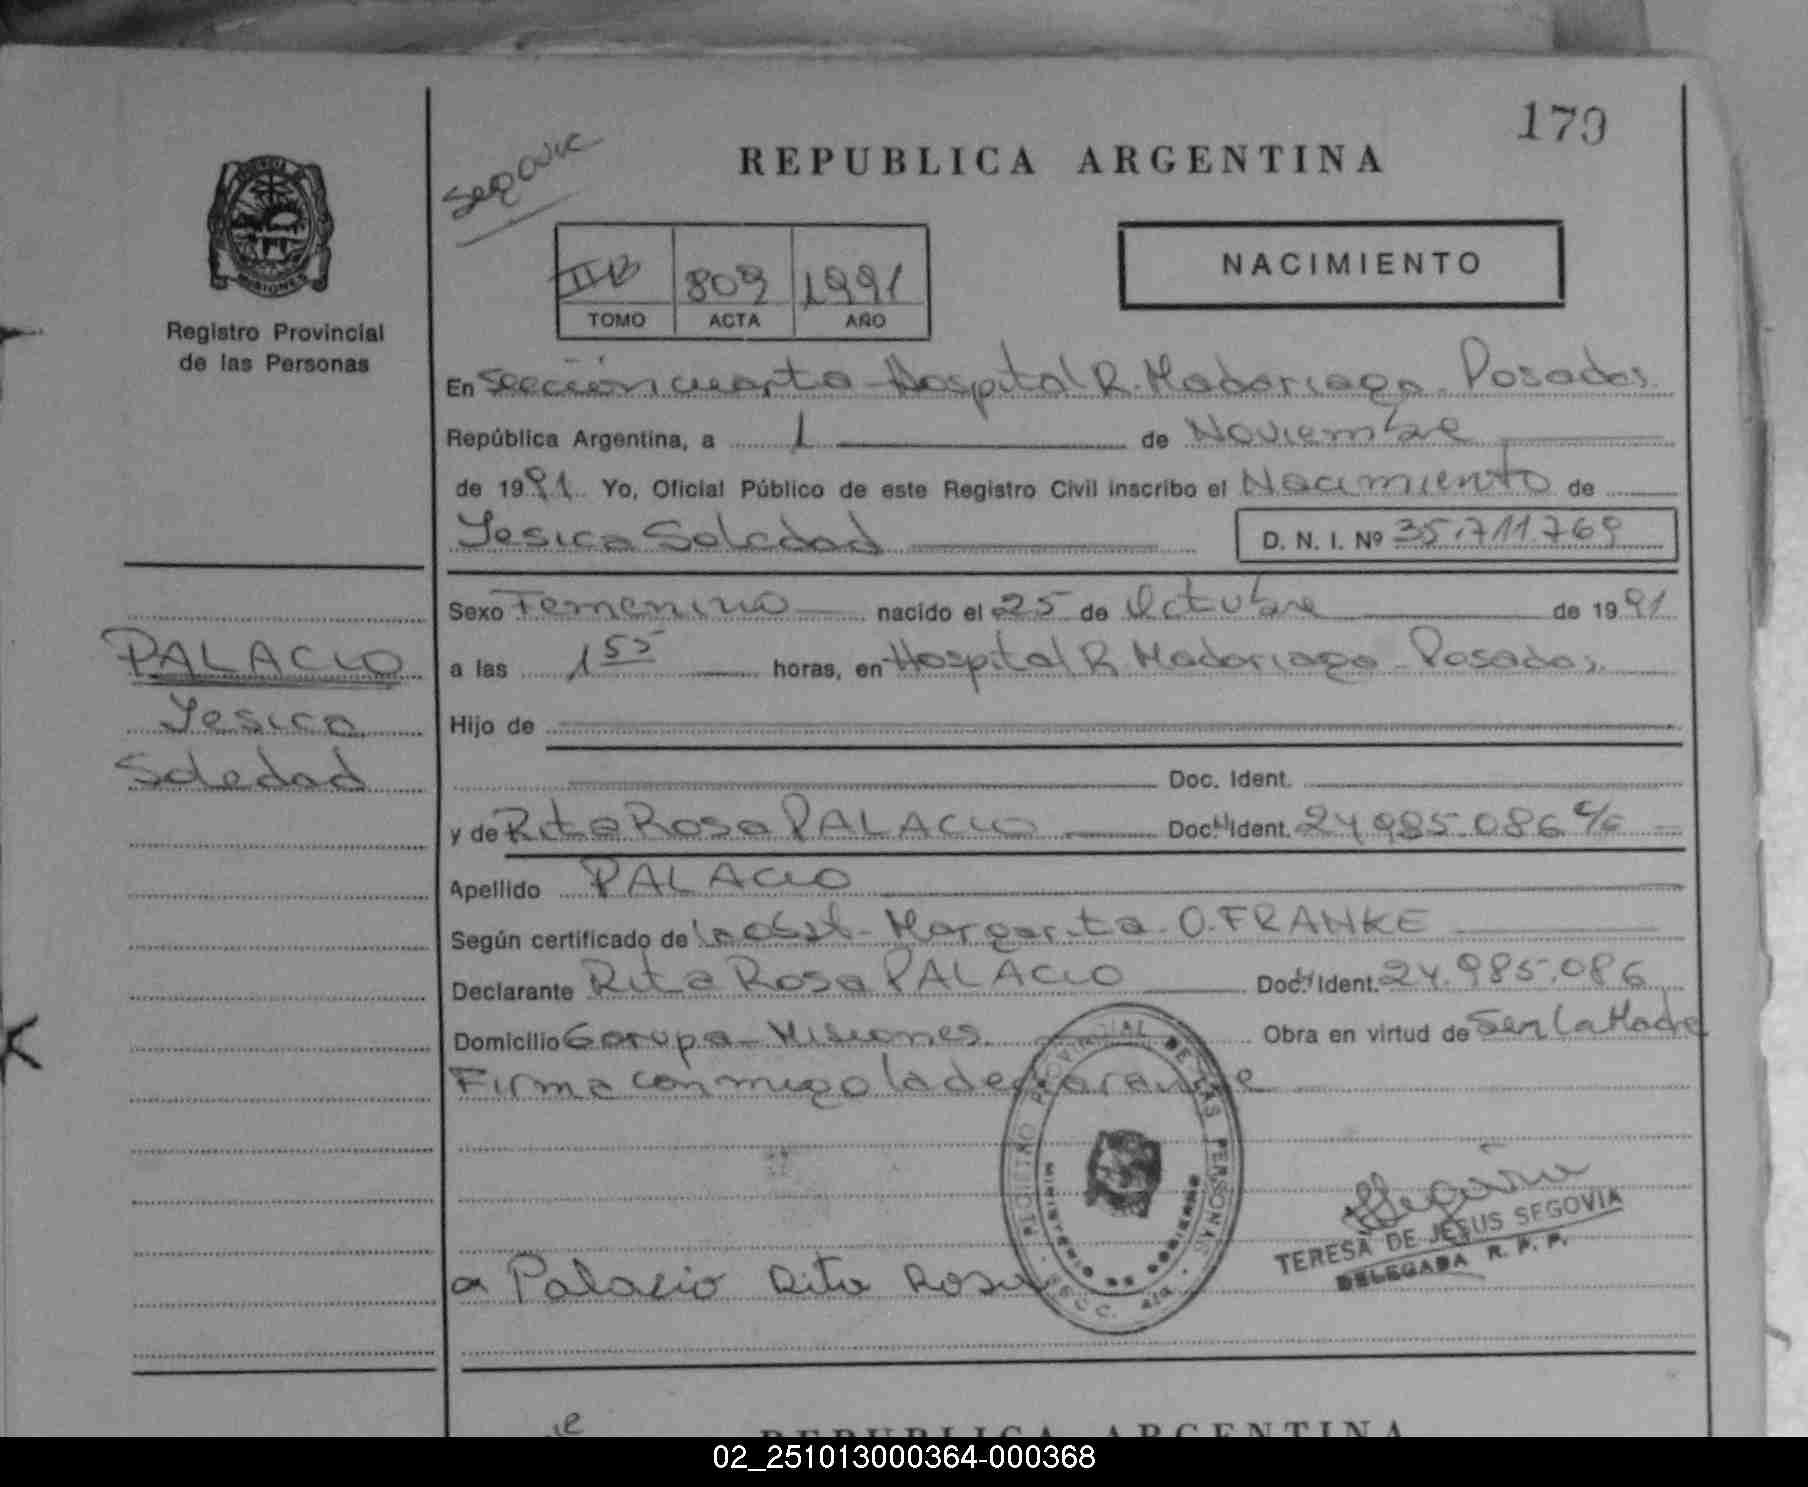 179
REPUBLICA ARGENTINA
Registro Provincial
de las Personas
IIB 809 1991
TOMO ACTA AÑO
NACIMIENTO
En Sección cuarta - Hospital R. Madariaga - Posadas
República Argentina, a 1 de Noviembre
de 1991. Yo, Oficial Público de este Registro Civil inscribo el Nacimiento de
Yesica Soledad D. N. I. Nº 35.711.769
PALACIO
Yesica
Soledad
Sexo Femenino nacido el 25 de Octubre de 1991
a las 1 55 horas, en Hospital R. Madariaga - Posadas
Hijo de
Doc. Ident.
y de Rita Rosa PALACIO Doc. Ident. 24.985.086
Apellido PALACIO
Según certificado de la Obst. Margarita O. FRANKE
Declarante Rita Rosa PALACIO Doc. Ident. 24.985.086
Domicilio Garupa - Misiones Obra en virtud de Ser la Madre
Firma conmigo la declarante
REGISTRO PROVINCIAL DE LAS PERSONAS
MINISTERIO DE GOBIERNO
SECC. 4ta
TERESA DE JESUS SEGOVIA
DELEGADA R. P. P.
Palacio Rita Rosa
REPUBLICA ARGENTINA
02_251013000364-000368